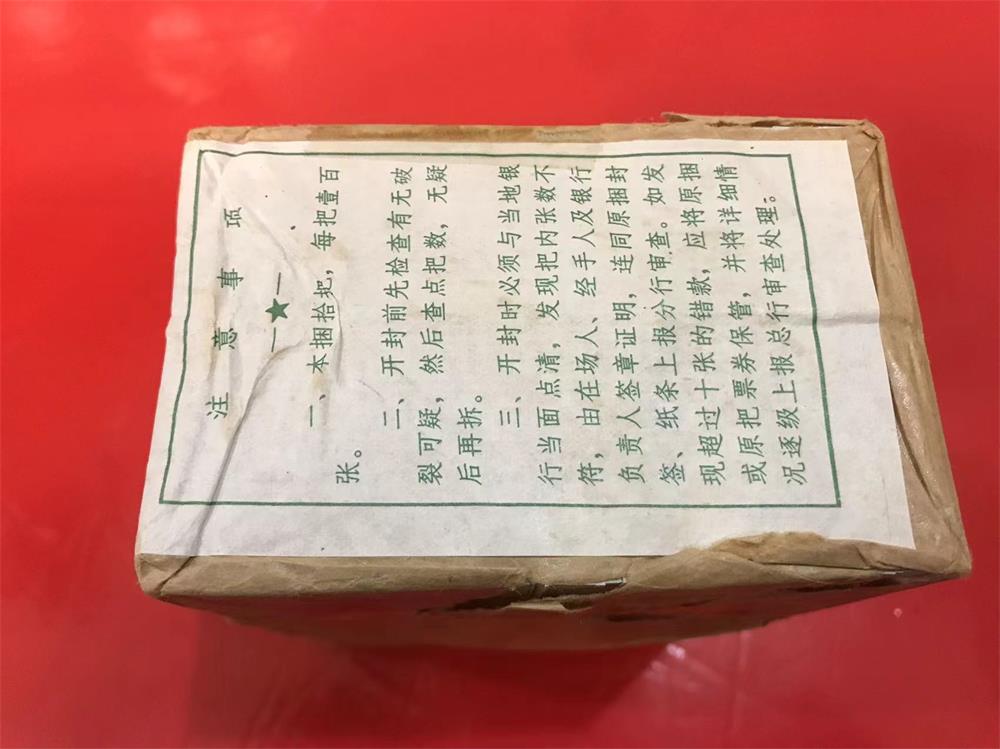 注意事项
一、本捆拾把,每把壹百
张。
二、开封前先检查有无破
裂可疑,然后查点把数,无疑
后再拆。
三、开封时必须与当地银
行当面点清,发现把内张数不
符,由在场人、经手人及银行
负责人签章证明,连同原捆封
签、纸条上报分行审查。如发
现超过十张的错款,应将原捆
或原把票券保管,并将详细情
况逐级上报总行审查处理。